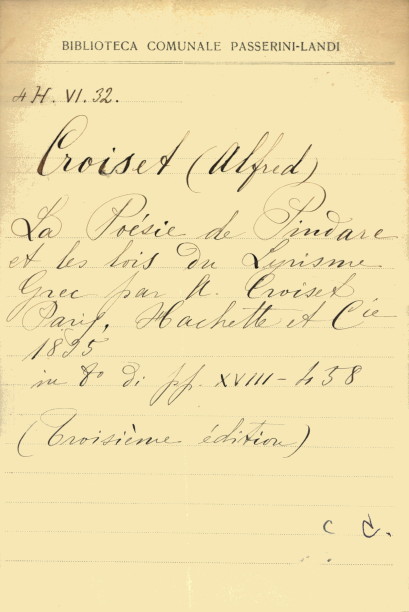 BIBLIOTECA COMUNALE PASSERINI-LANDI
4 H. VI. 32.
Croiset (Alfred)
La Poésie de Pindare
et les lois du Lyrisme
Grec par A. Croiset
Paris, Hachette et Cie
1895
in 8º di pp. XVIII-458
(Troisième édition)
C C.